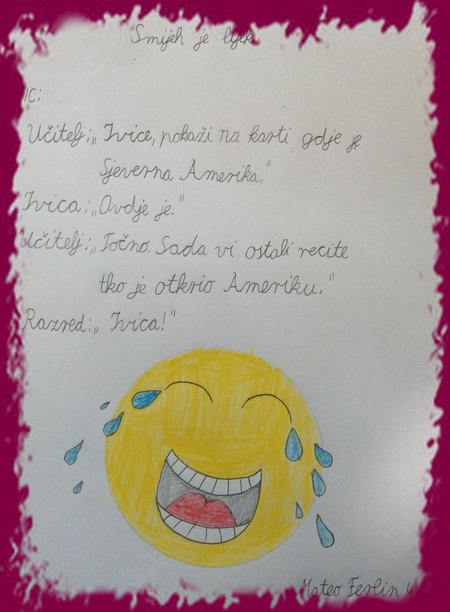 Smijeh je lijek
IC:
Učitelj: „Ivice, pokaži na karti gdje je
Sjeverna Amerika."
Ivica: „Ovdje je."
Učitelj: „Točno. Sada vi ostali recite
tko je otkrio Ameriku."
Razred: „Ivica!"
Mateo Ferlin 4